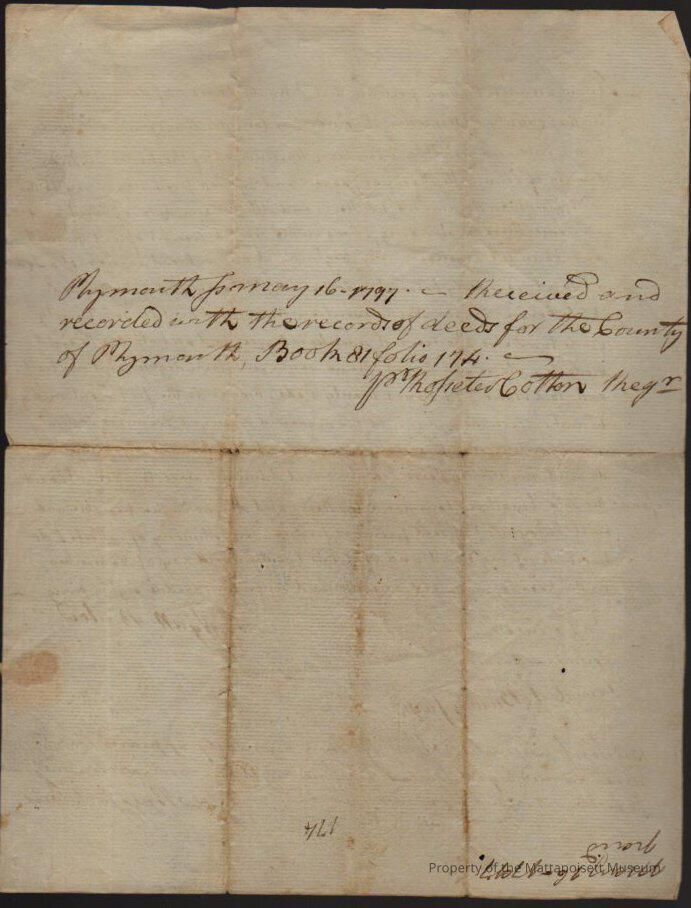 Plymouth ss May 16-1797. Received and
recorded with the records of deeds for the County
of Plymouth, Book 81 folio 174.
pr Rosseter Cotton Regr
174
paid
May 16-1797.
Property of the Mattapoisett Museum